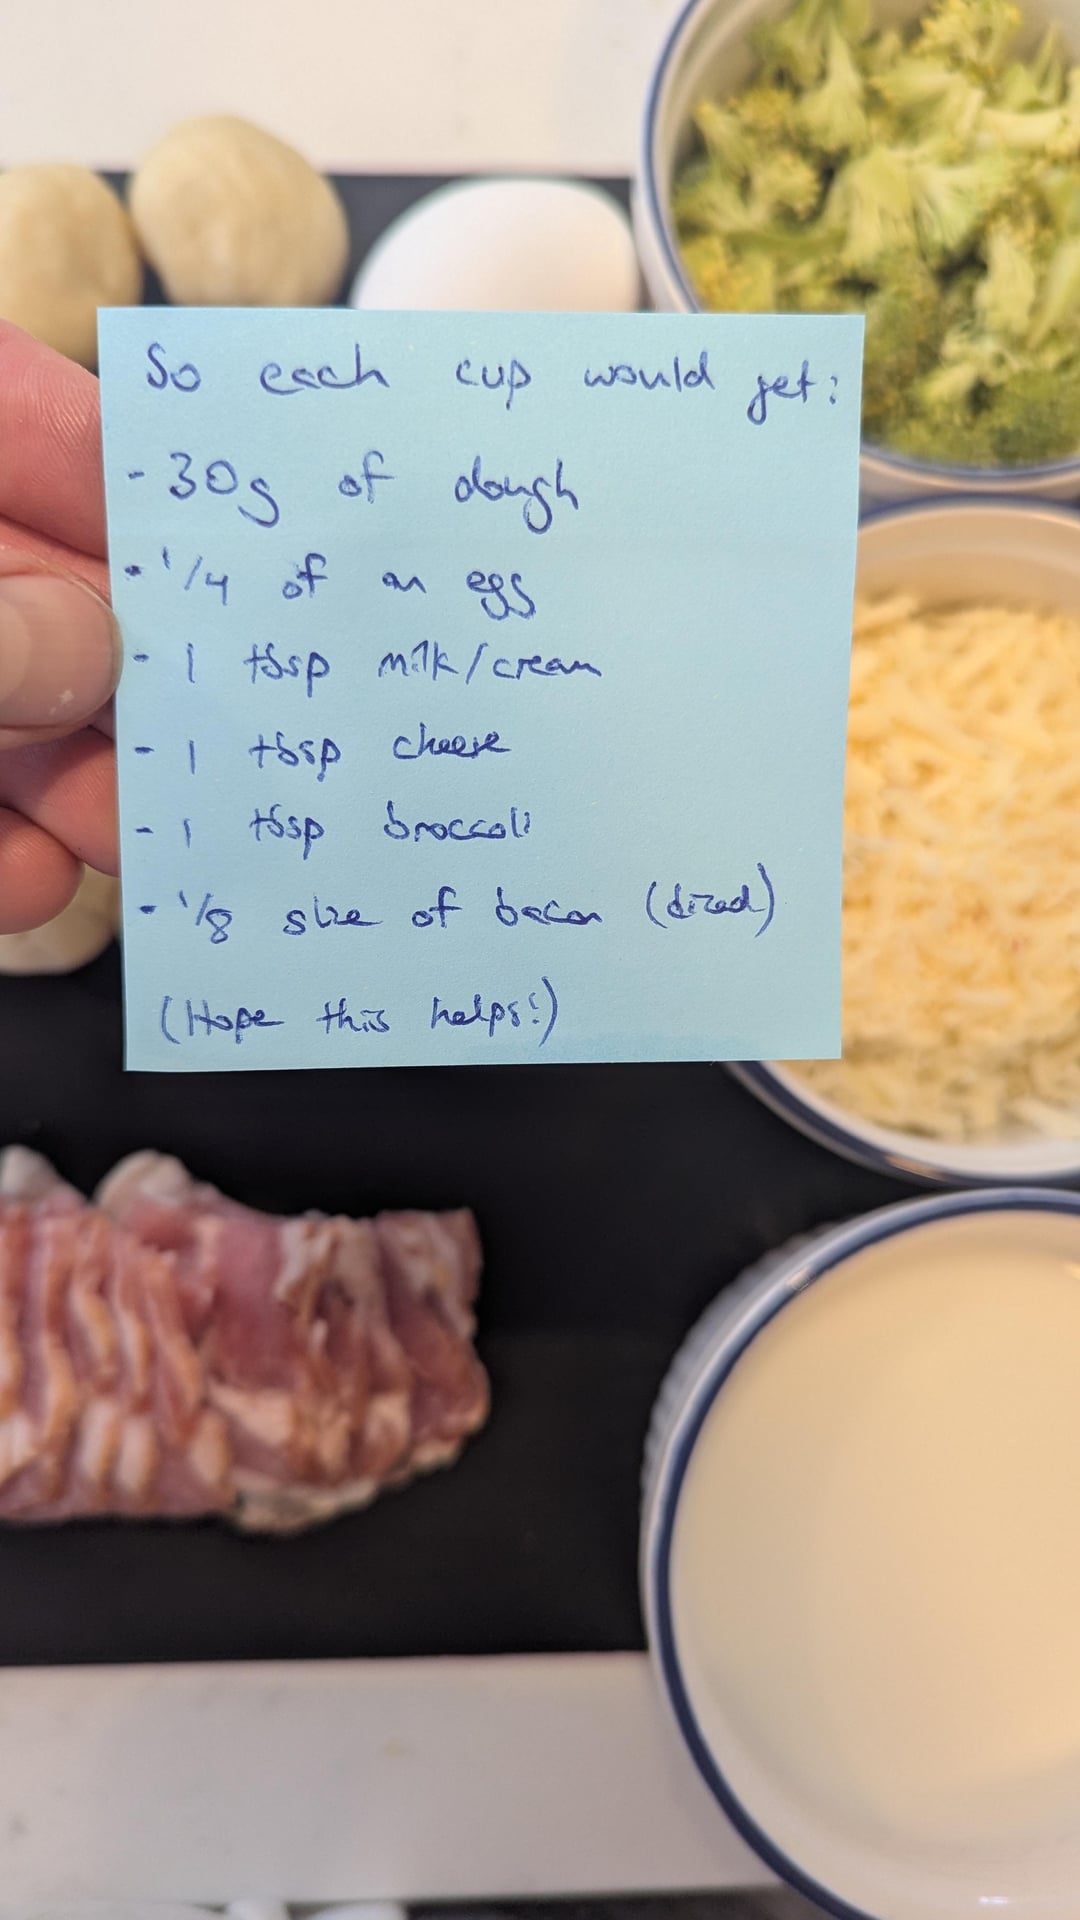 So each cup would get:
- 30g of dough
- 1/4 of an egg
- 1 tbsp milk/cream
- 1 tbsp cheese
- 1 tbsp broccoli
- 1/8 slice of bacon (diced)
(Hope this helps!)